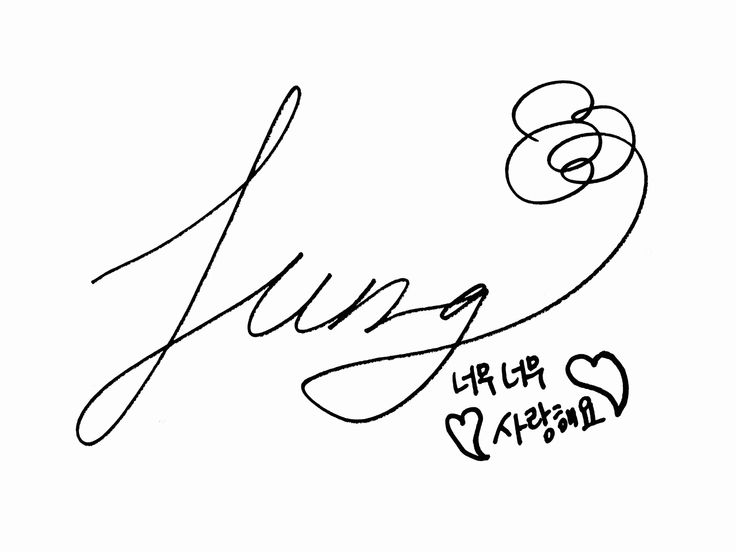 Jung
너무 너무
사랑해요